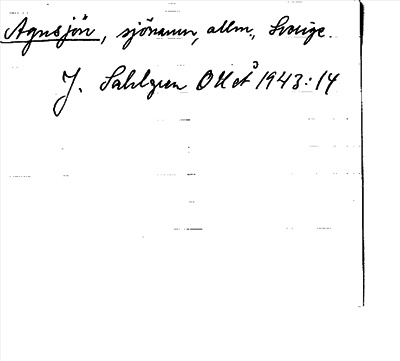 Agnsjön, sjönamn, allm., Sverige.
J. Sahlgren OUÅ 1943:14